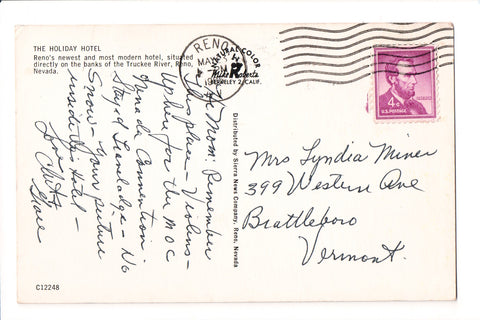 THE HOLIDAY HOTEL
Reno's newest and most modern hotel, situated
directly on the banks of the Truckee River, Reno,
Nevada.
RENO
MAY
NATURAL COLOR
Mike Roberts
BERKELEY 2, CALIF.
4¢
U.S. POSTAGE
Hi Mom: Remember
this place - Violins -
Up here for the M.O.C
Nevada Convention
Stayed Travelodge - No
Snow - Your picture
inside this Hotel -
Love
Grace
Distributed by Sierra News Company, Reno, Nevada
Mrs Lyndia Miner
399 Western Ave
Brattleboro
Vermont.
C12248